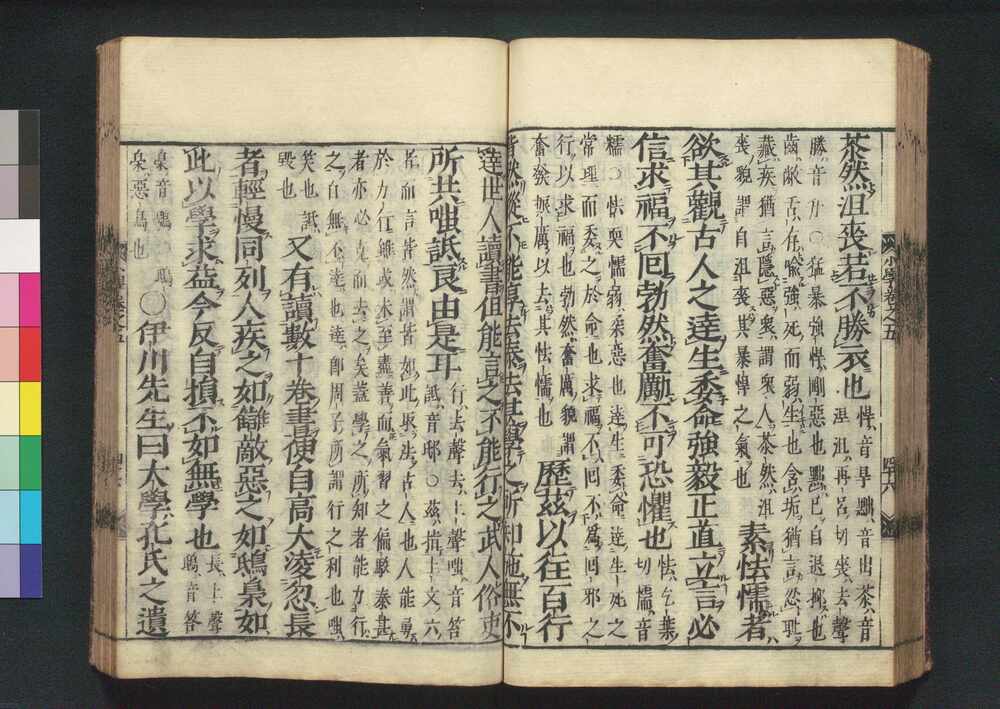 茶然沮喪若不勝衣也
悍音旱黜音出茶音
涅沮再呂切喪去聲
勝音升○猛暴強悍剛惡也黜巳自退抑也
齒敝舌存喻強死而弱生也含垢猶言忍恥
藏疾猶言隱惡衆謂衆人茶然沮
喪貌謂自沮喪其暴悍之氣也
素怯懦者
欲其觀古人之達生委命強毅正直立言必
信求福不回勃然奮勵不可恐懼也
怯乞業
切懦音
糯○怯耎懦弱柔惡也達生委命達生死之
常理而委之於命也求福不回不爲回邪之
行以求福也勃然奮厲貌謂
奮發振厲以去其怯懦也
歷茲以往百行
皆然縱不能淳去泰去甚學之所知施無不
小學卷之五
四六
達世人讀書但能言之不能行之武人俗吏
所共嗤詆良由是耳
行去聲去上聲嗤音答
詆音邸○茲指上文六
者而言皆然謂皆如此取法古人也人能勇
於力行雖或未至盡善而氣習之偏驕泰甚
者亦必克而去之矣蓋學之所知者能力行
之自無不達也達卽周子所謂行之利也嗤
笑也詆
毀也
又有讀數十卷書便自高大凌忽長
者輕慢同列人疾之如讎敵惡之如鴟梟如
此以學求益今反自損不如無學也
長上聲
鴟音答
梟音 ○鴟
梟惡鳥也
○伊川先生曰大學孔氏之遺